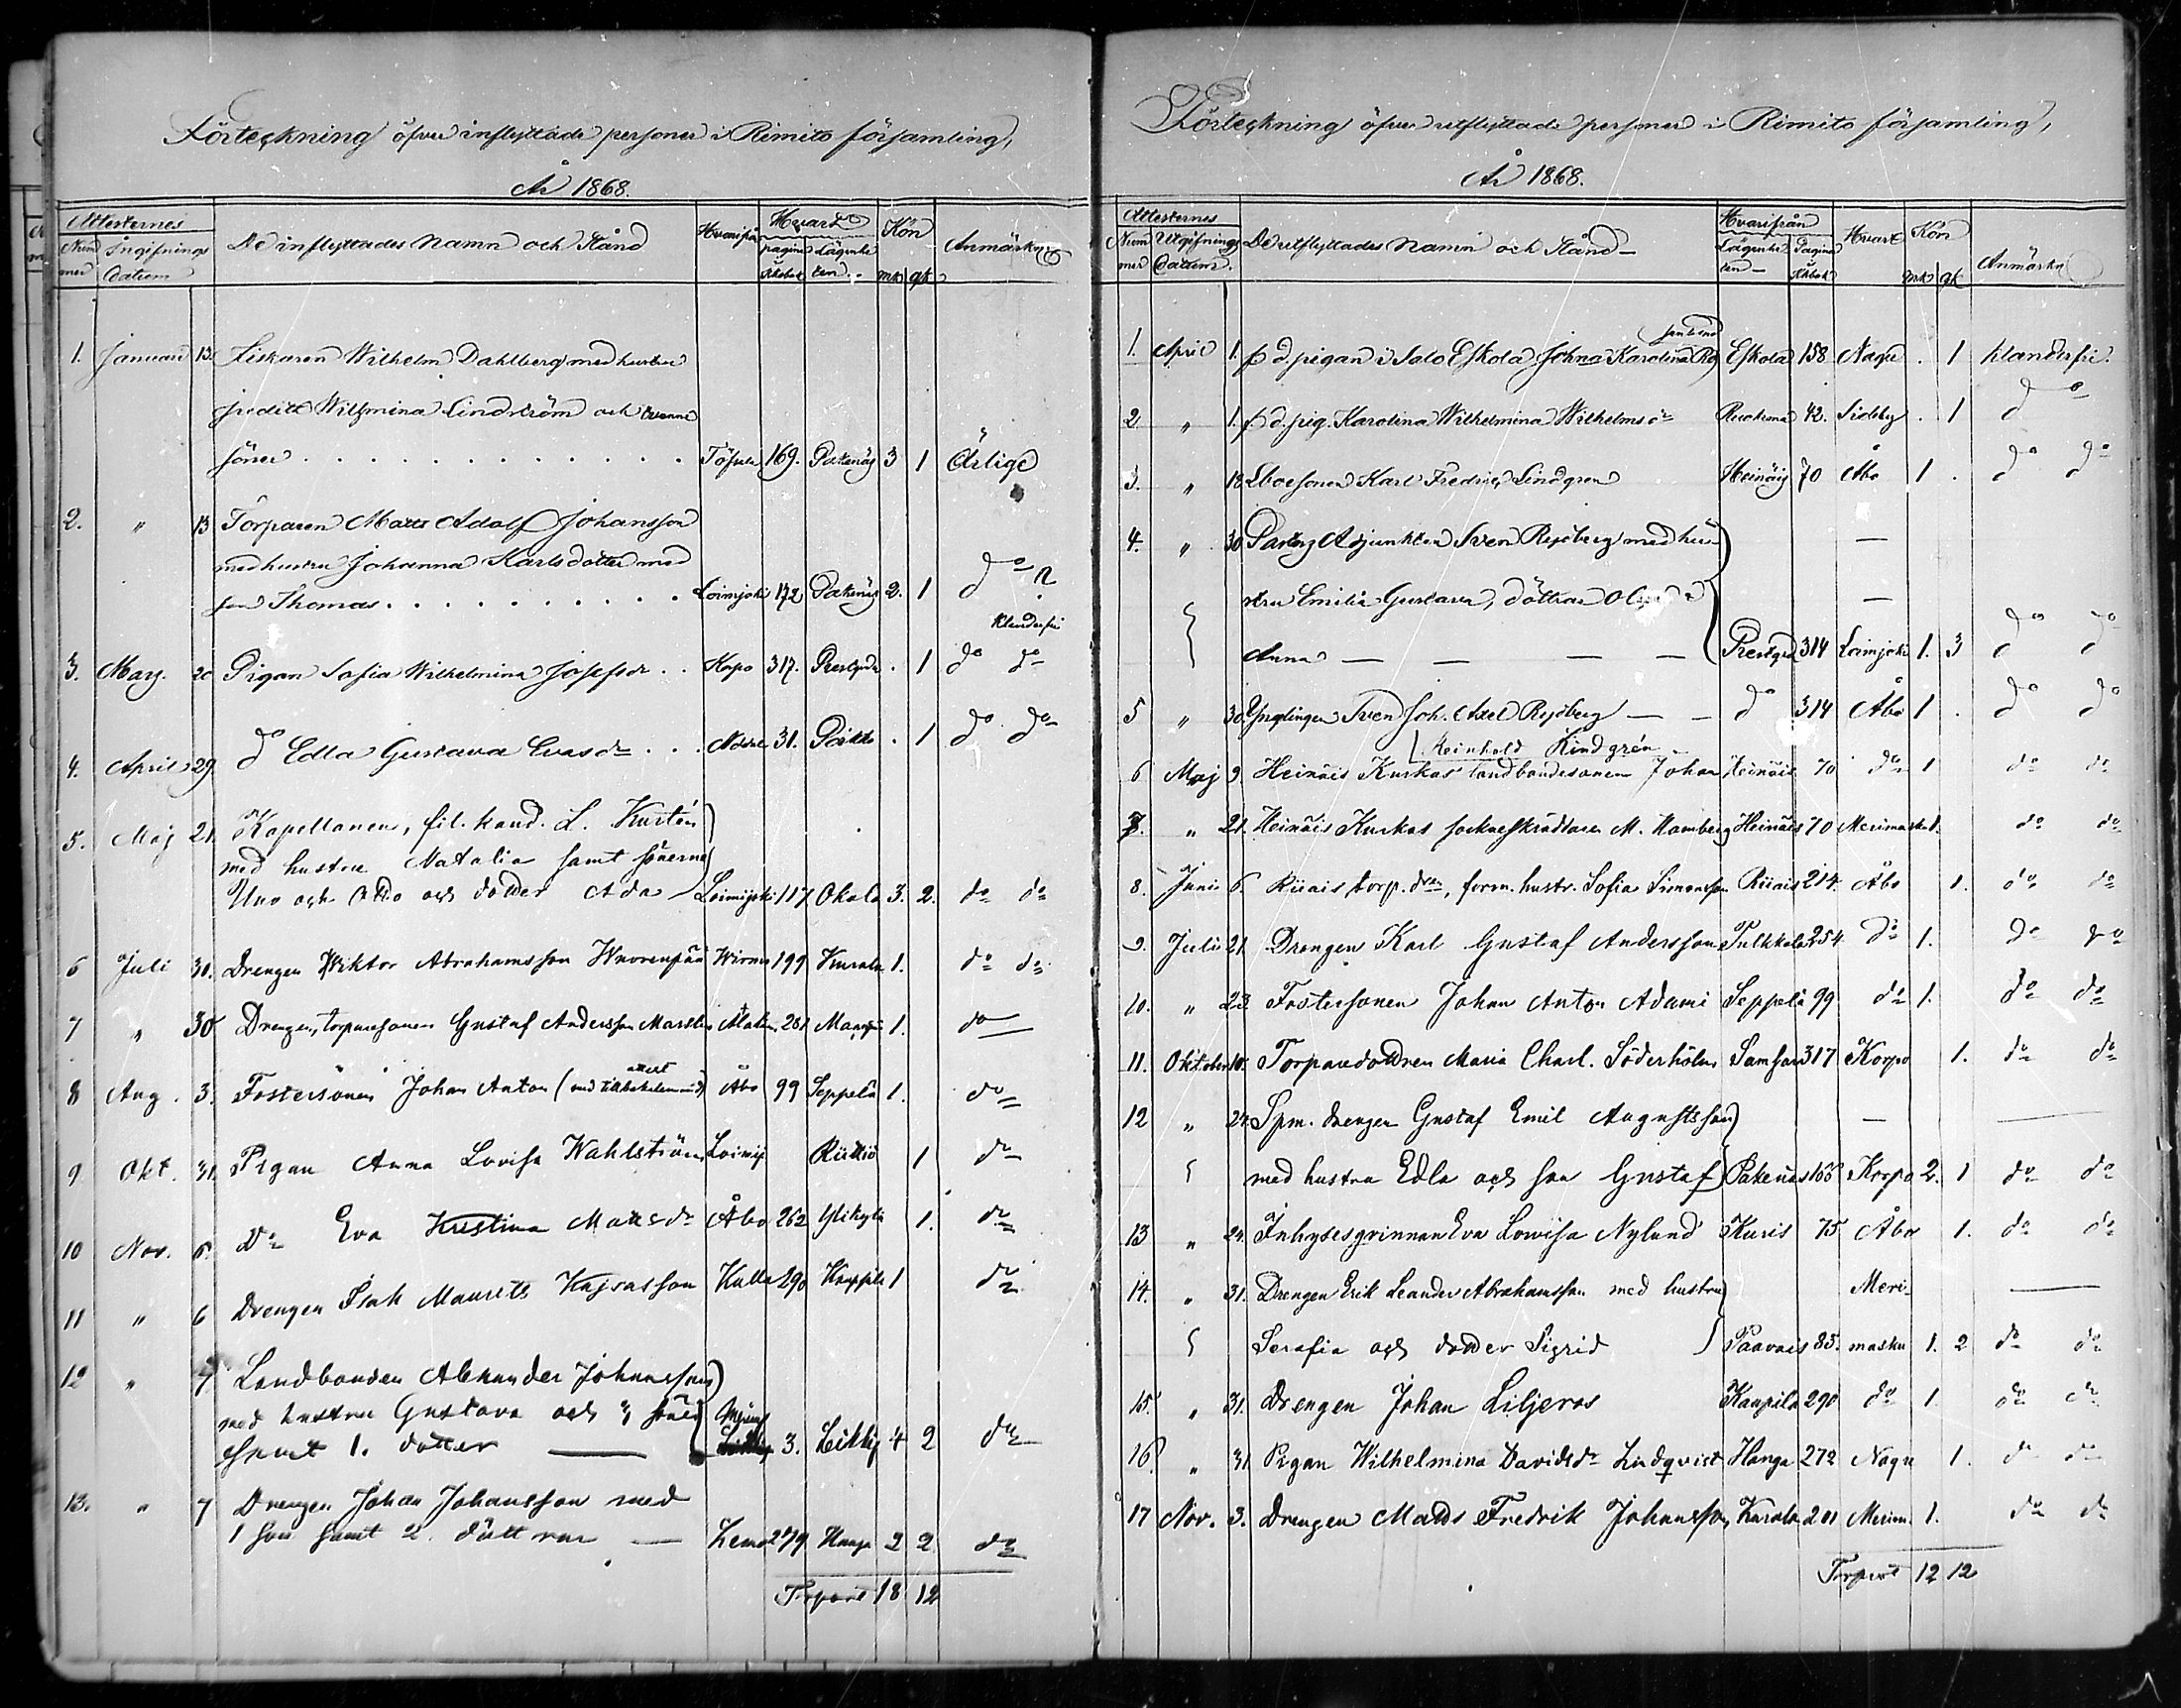 Förteckning öfver inflyttade personer i Rimito församling,
År 1868.
Attesternes
Hvart
Kön
Num mer Ingifnings datum De inflyttades namn och stånd Hvarifrån pagina i kboken Lägenheten mk qk Anmärkn
1. Januari 13. Fiskaren Wilhelm Dahlberg med hustru
Judith Wilhmina Lindström och tvenne
söner Töfsala 169. Pakenäs 3 1 Ärlige
2. " 13 Torparen Matts Adolf Johansson
med hustru Johanna Karlsdotter med
son Thomas Loimjoki 172 Pakenäs 2. 1 do
klanderfri
3. Marz. 20 Pigan Sofia Wilhelmina Josefsdr Korpo 317. Prestgrd . 1 do do
4. April 29 do Edla Gustava Evasdr 31. Poikko . 1 do do
5. Maj 21. Kapellanen, fil. kand. L. Kurtén
med hustru Natalia samt sönerna
Uno och Otto och dotter Ada Loimijoki 117 Okala 3. 2. do do
6 Juli 30. Drengen Wiktor Abrahamsson Wuorenpää Wirmo 199 Kurala 1. do do
7 " 30 Drengen, torparesonen Gustaf Andersson 281 1. do
8 Aug. 3. Fostersonen Johan Anton (med attest) Åbo 99 Seppälä 1. do
9 Okt. 31. Pigan Anna Lovisa Wahlström Loimij 1 do
10 Nov. 6. Do Eva Kristina Matsdr Åbo 262 Ylikylä 1. do
11 " 6 Drengen Isak Maurits Kajsasson Kulla 290 Kaupila 1 do
12 " 7 Landbonden Alexander Johansson
med hustru Gustava och 3 söner
samt 1. dotter 3. 4 2 do
13. " 7 Drengen Johan Johansson med
1 son samt 2. döttrar Lemo 279 Hanga 2 2 do
Trsport 18 12
Förteckning öfver utflyttade personer i Rimito församling,
År 1868.
Attesternes
Hvarifrån
Kön
Num mer Utgifnings datum. De utflyttades namn och stånd Lägenheten Pagina i kbok Hvart mk qk Anmärkn
1. April 1. f d pigan i Salo Eskola Johna Karolina Eskola 158 Nagu . 1 klanderfri.
2 " 1. f d. pig. Karolina Wilhelmina Wilhelmsdr 42. Sideby . 1 do
3. " 18 Karl Fredric Lindgren Heinäis 70 Åbo 1 . do do
4. " 30 Pastors Adjunkten Sven Rydberg med hu
stru Emilia Gustava, döttrar Olga o
Anna Prestgrd 314 Loimjoki 1. 3 do do
5 " 30. Ynglingen Sven Joh. Axel Rydberg do 314 Åbo 1 . do do
Reinhold Lindgrén
6 Maj 9. Heinäis Kurkas landbondesonen Johan Heinäis 70 do 1 do do
7. " 21. Heinäis Kurkas sockneskräddaren M. Hamberg Heinäis 70 Merimasku 1. do do
8. Juni 6 Riiais torp. dr, forn. hustr. Sofia Simonsson Riiais 214. Åbo 1. do do
9. Juli 21. Drengen Karl Gustaf Andersson Pulkkala 254 do 1. do do
10. " 23. Fostersonen Johan Anton Adami Seppälä 99 do 1. do do
11. Oktober 10. Torparedottren Maria Charl. Söderholm Samsari 317 Korpo 1. do do
12 " 24. Spm. drengen Gustaf Emil Augustsson
med hustru Edla och son Gustaf Pakenäs 166 Korpo 2. 1 do do
13 " 24. Inhysesqvinnan Eva Lowisa Nylund Kuris 75 Åbo 1. do do
14. " 31. Drengen Erik Leander Abrahamsson med hustru Meri-
Serafia och dotter Sigrid Paavais 85. masku 1. 2 do do
15. " 31. Drengen Johan Liljeros Kaupila 290 do 1. do do
16. " 31 Pigan Wilhelmina Davidsdr Lindqvist Hanga 272 Nagu 1. do do
17 Nov. 3. Drengen Matts Fredrik Johansson Kurala 201 Merim. 1. do do
Trsport 12 12